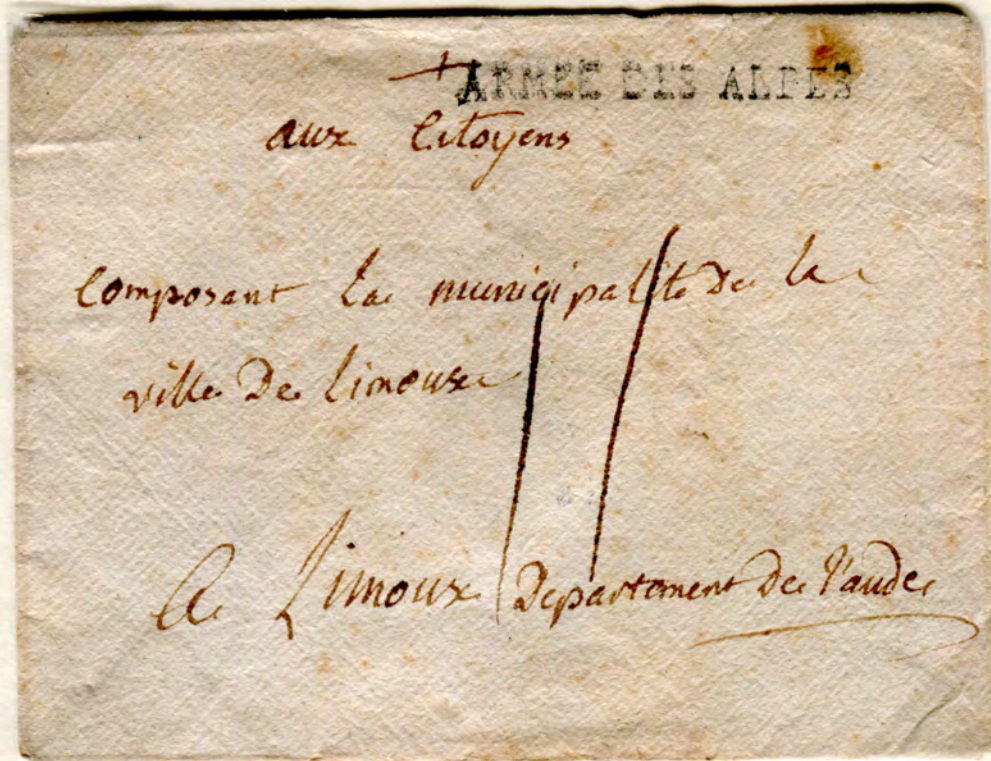 ARMÉE DES ALPES
aux Citoyens
Composant La municipalité De la
ville De Limoux
A Limoux Département De l'aude
11